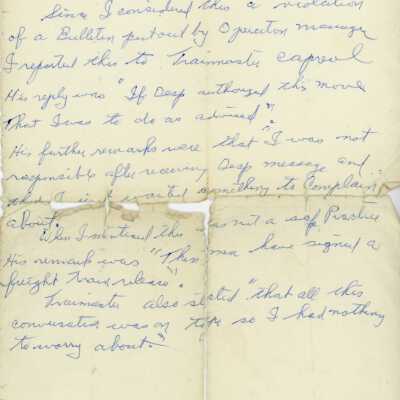 Since I considered this a violation
of a Bulletin put out by Operation manager
I reported this to Trainmaster Caprool
His reply was "If Desp authorized this move
That I was to do as advised".
His further remarks were that I was not
responsible after receiving Desp message and
that I just wanted something to Complain"
about.
When I mentioned this was not a safe Practice
His remark was "These men have signed a
freight train release".
Trainmaster also stated "that all this
conversation was on tape so I had nothing
to worry about."